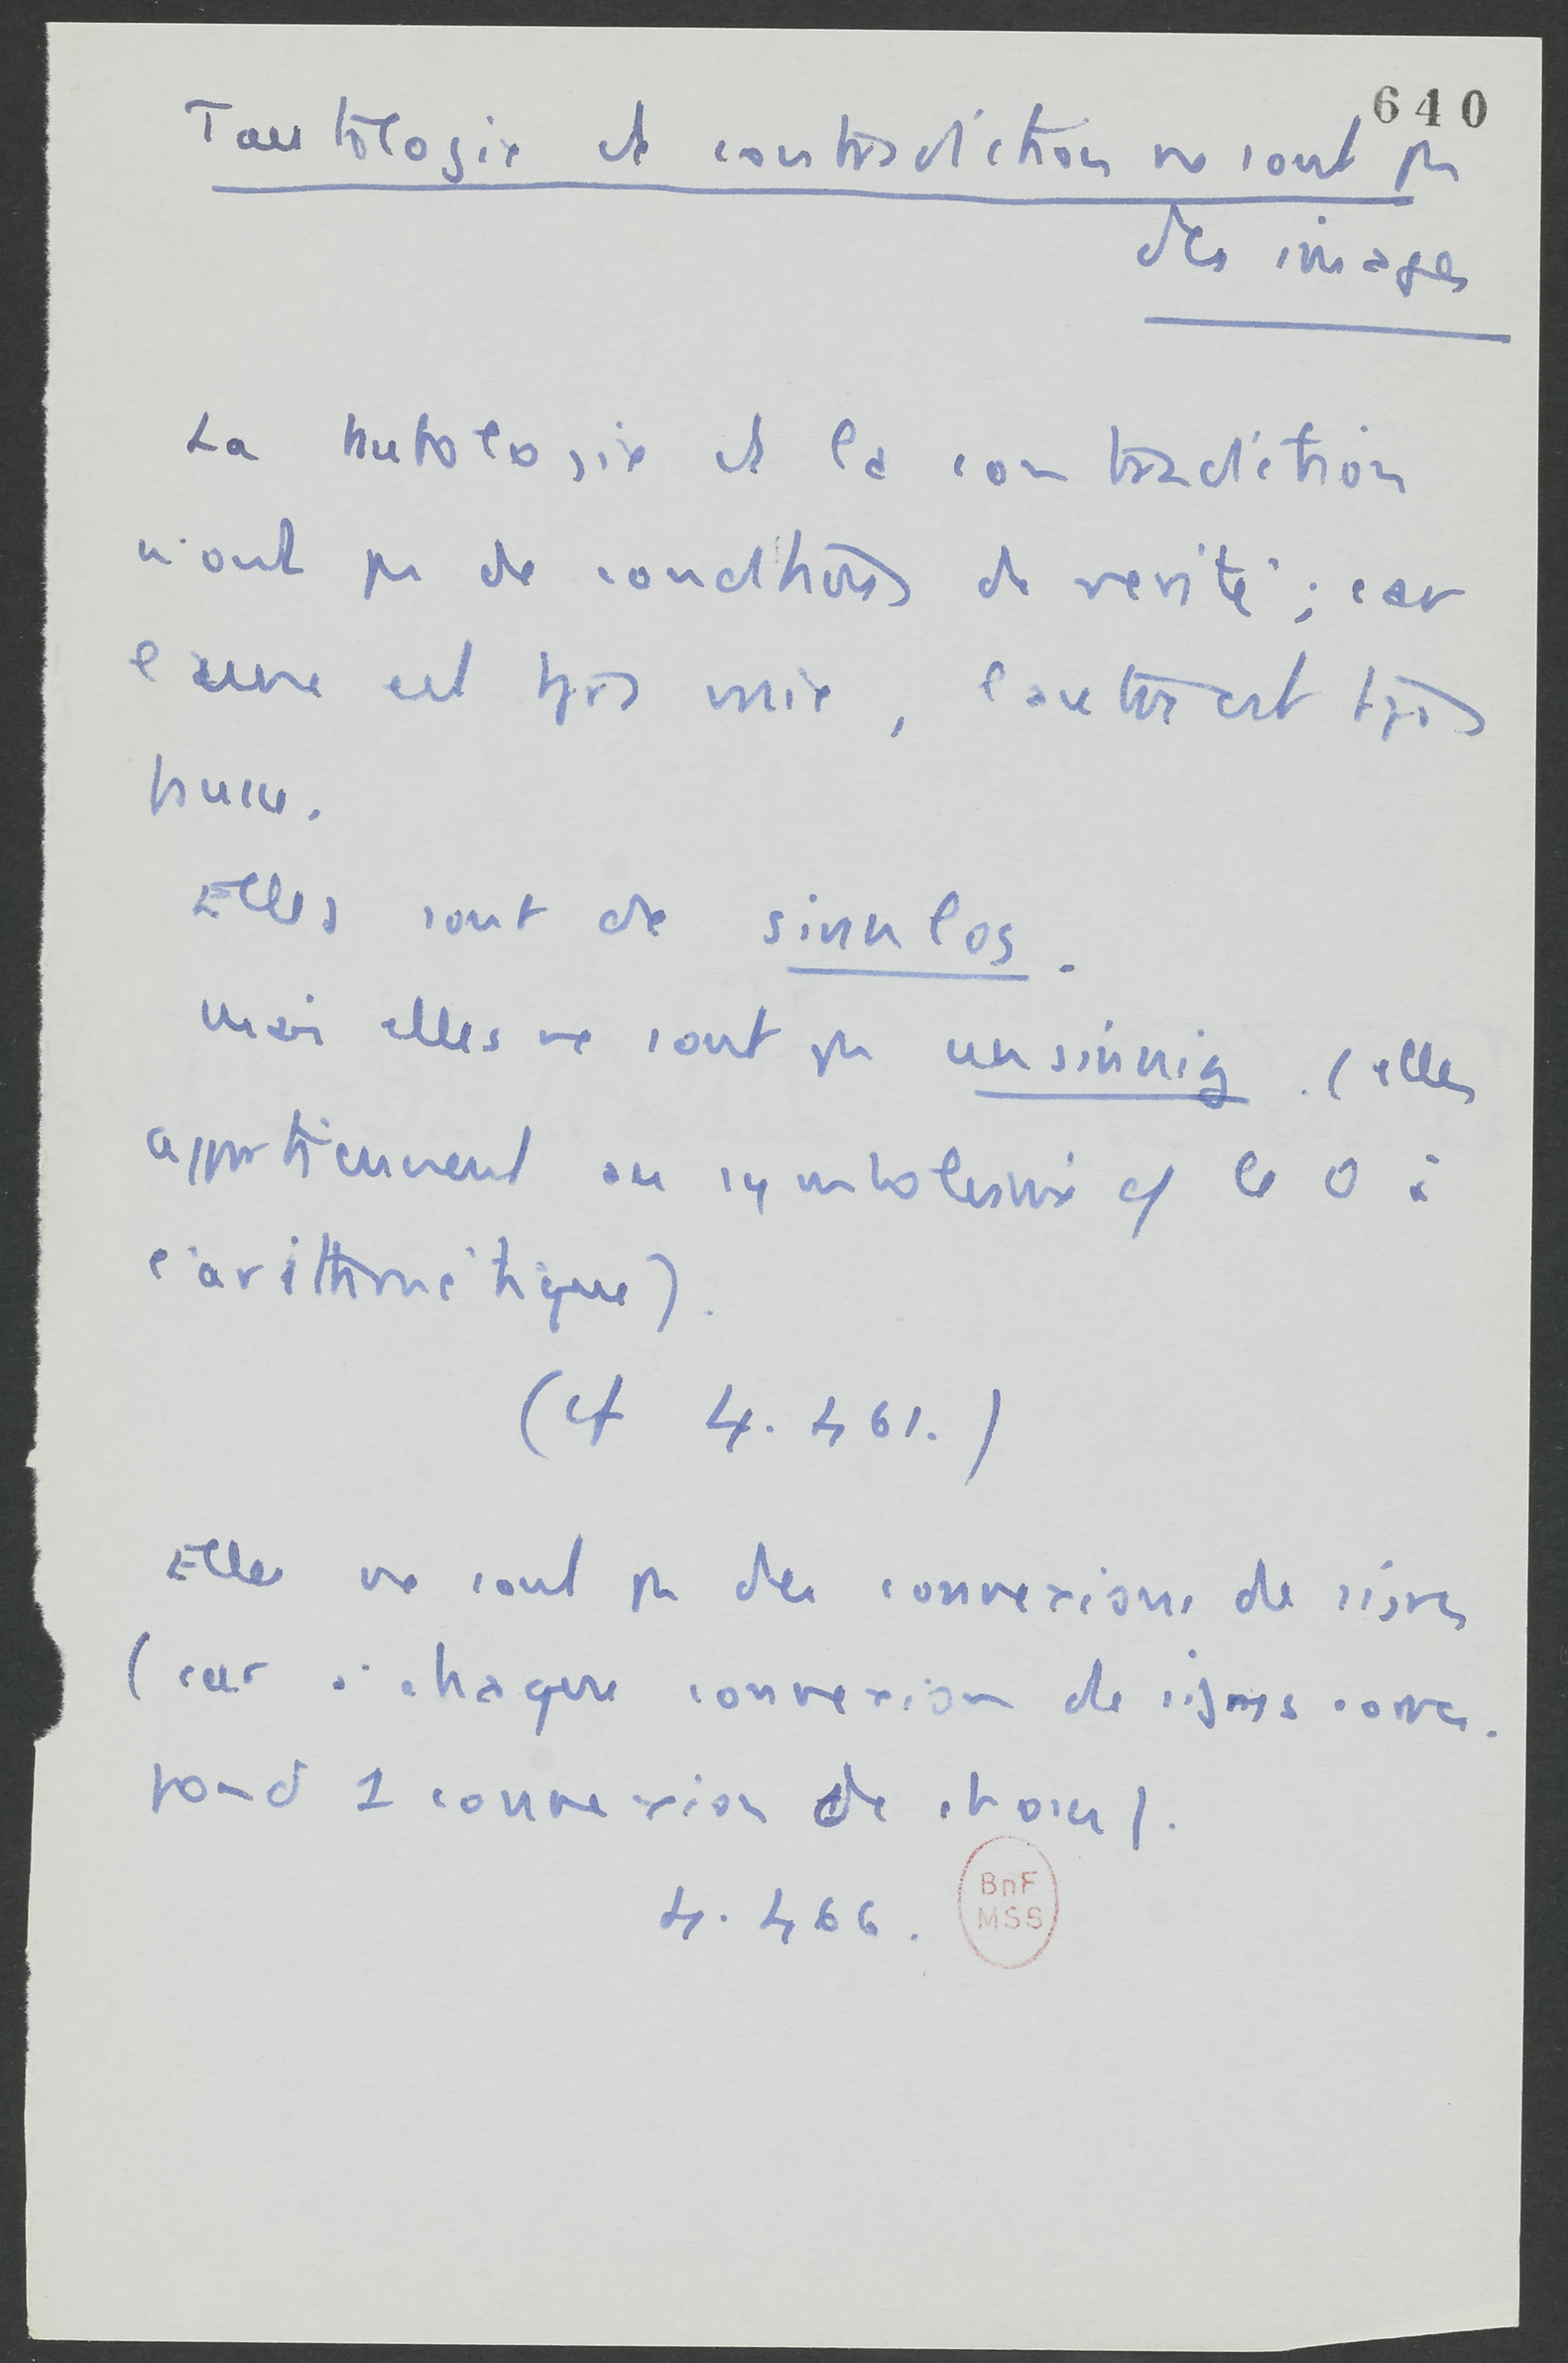 640
Tautologie et contradiction ne sont pas
des images
La tautologie et la contradiction
n'ont pas de conditions de vérité ; car
l'une est tjrs vraie, l'autre est tjrs
fausse.
Elles sont de sinnlos.
Mais elles ne sont pas unsinnig. (elles
appartiennent au symbolisme cf le 0 à
l'arithmétique).
(cf 4.461.)
Elles ne sont pas des connexions de signes
(car à chaque connexion de signes corres-
pond 1 connexion de choses).
4.466.
BnF
MSS